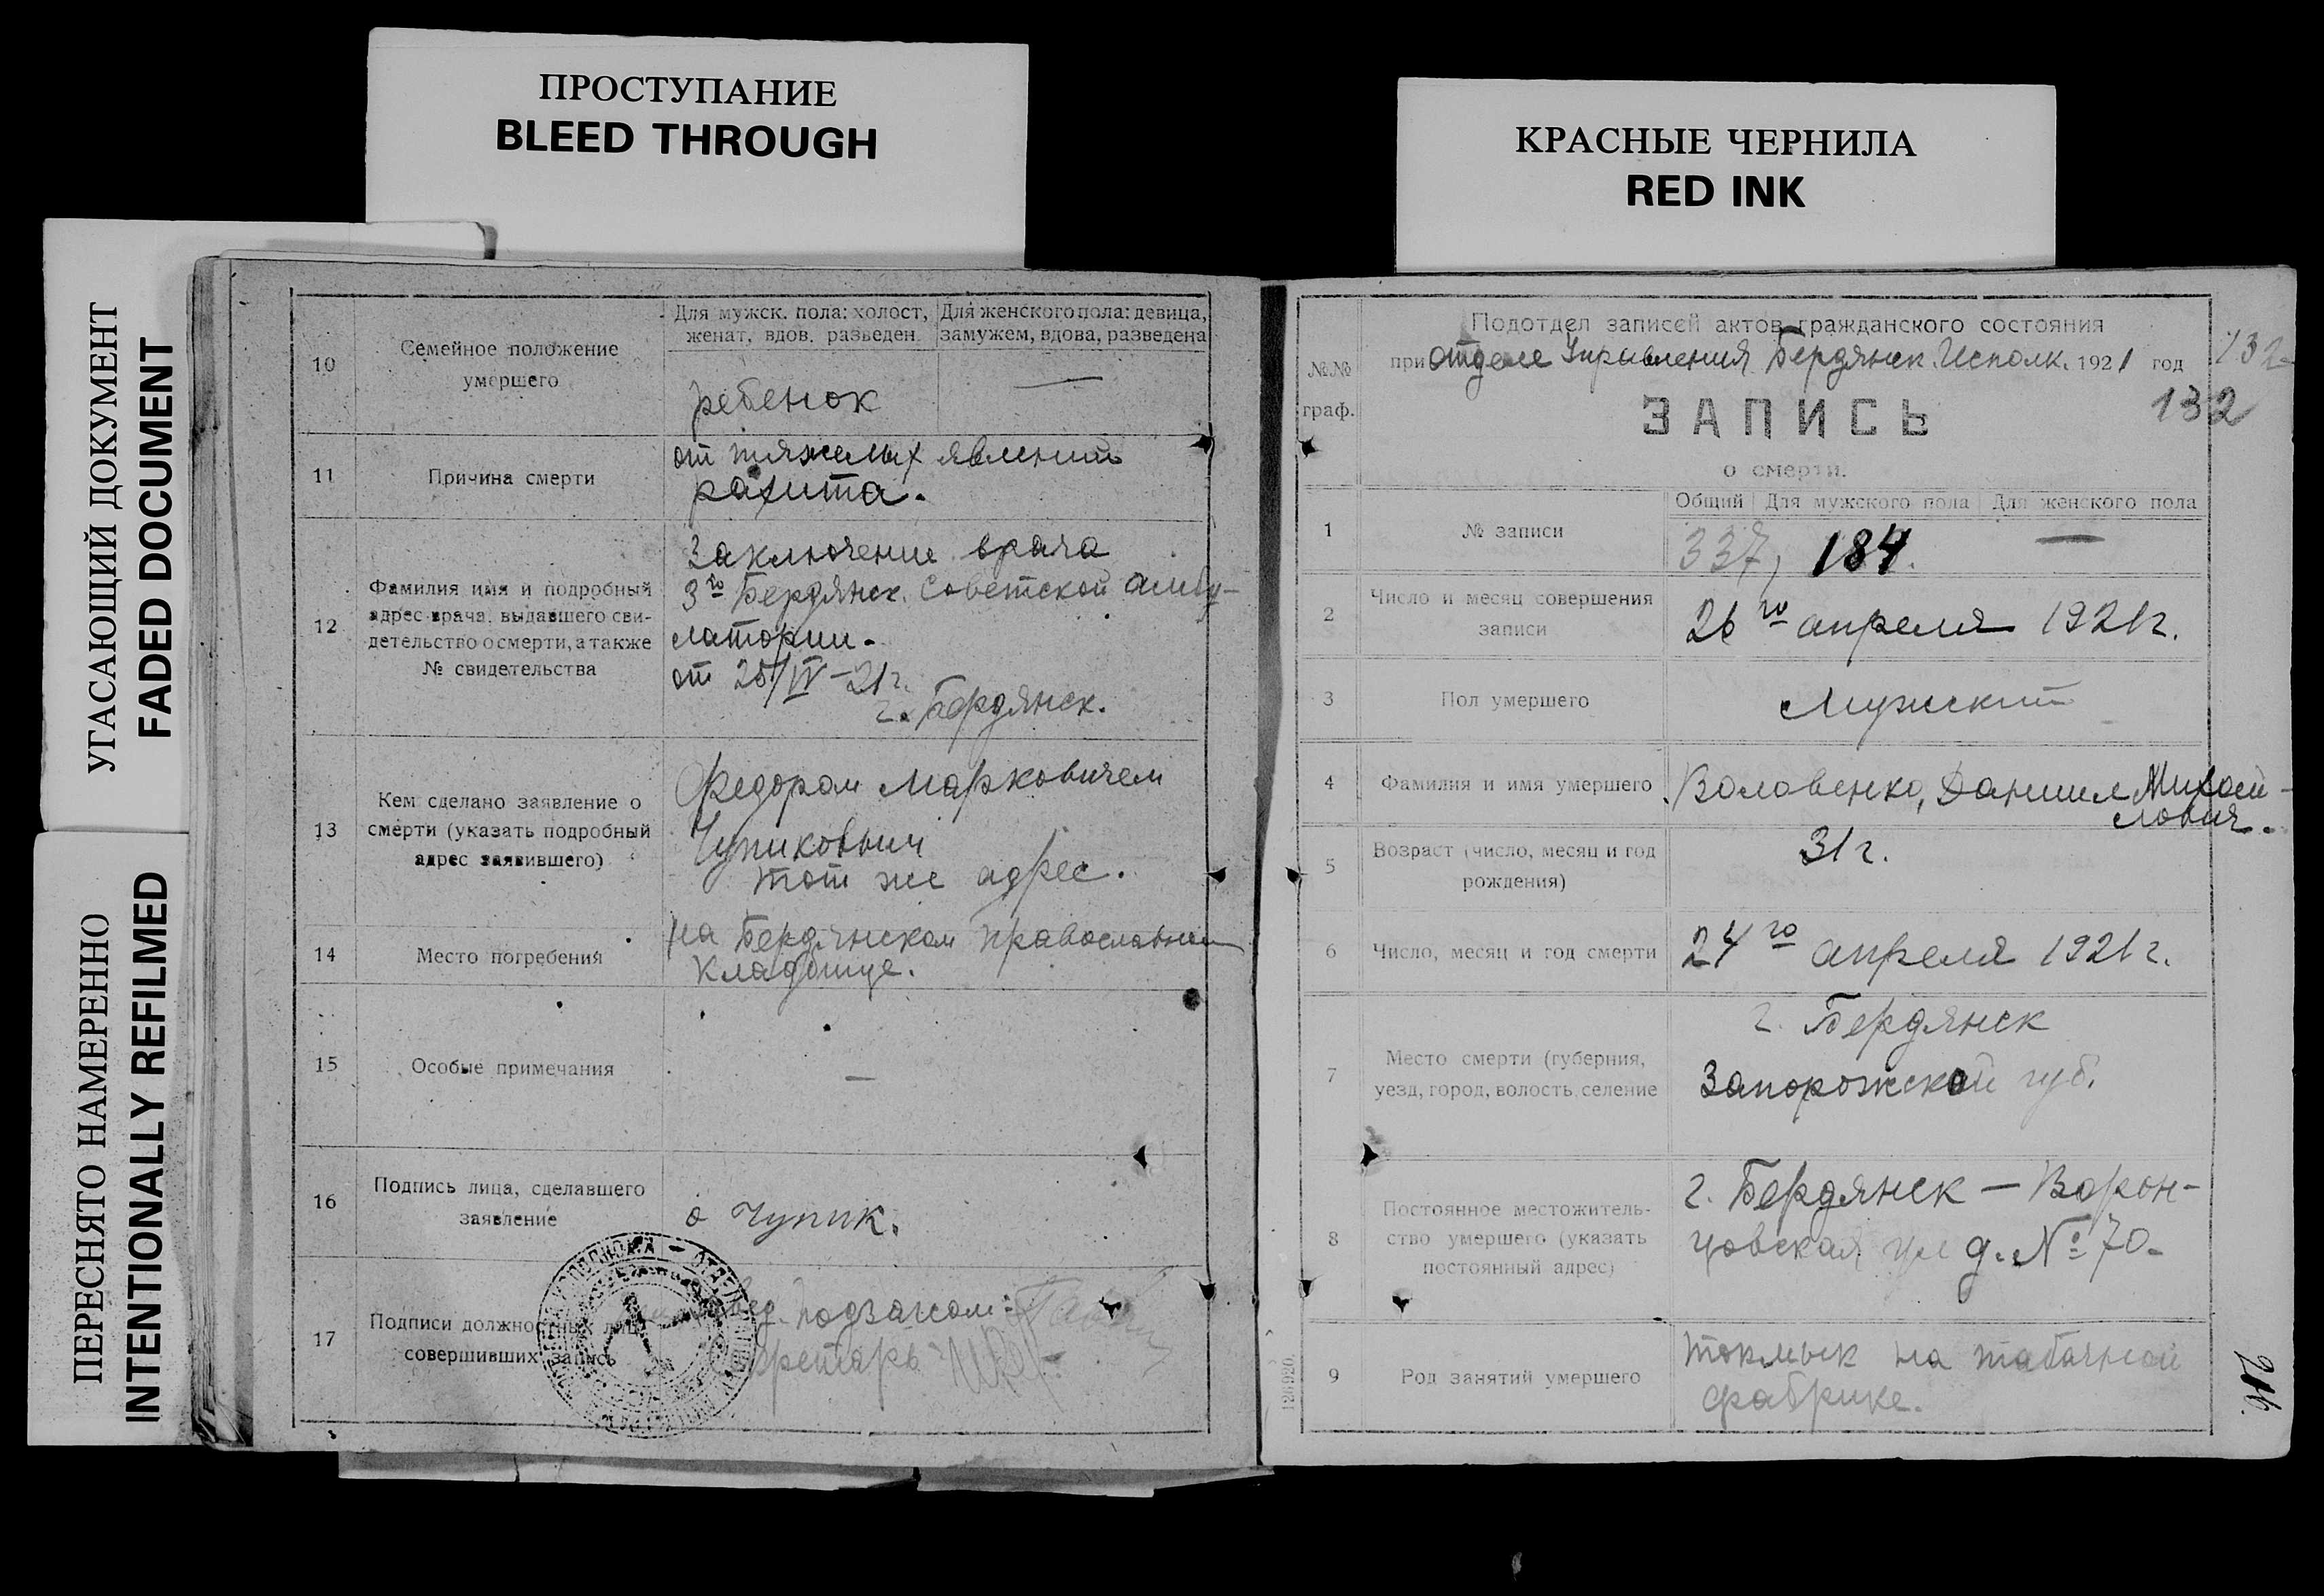 ПРОСТУПАНИЕ
BLEED THROUGH
КРАСНЫЕ ЧЕРНИЛА
RED INK
УГАСАЮЩИЙ ДОКУМЕНТ
FADED DOCUMENT
ПЕРЕСНЯТО НАМЕРЕННО
INTENTIONALLY REFILMED
10
Семейное положение
умершего
Для мужск. пола: холост,
женат, вдов, разведен.
Для женского пола: девица,
замужем, вдова, разведена
ребенок
—
11
Причина смерти
от тяжелых явлений
рахита.
12
Фамилия имя и подробный
адрес врача, выдавшего сви-
детельство о смерти, а также
№ свидетельства
Заключение врача
3го Бердянск. Советской амбу-
латории.
от 25/IV-21г.
г. Бердянск.
13
Кем сделано заявление о
смерти (указать подробный
адрес заявившего)
Федором Марковичем
Чупиковым
тот же адрес.
14
Место погребения
на Бердянском православном
кладбище.
15
Особые примечания
—
16
Подпись лица, сделавшего
заявление
Чупик.
17
Подписи должностных лиц
совершивших запись
Завед. подзагсом:
Секретарь
№№
граф.
Подотдел записей актов гражданского состояния
при отделе Управления Бердянск. Исполк. 1921 год
132
132
ЗАПИСЬ
о смерти.
1
№ записи
Общий
Для мужского пола
Для женского пола
337,
184.
—
2
Число и месяц совершения
записи
26го апреля 1921г.
3
Пол умершего
Мужской
4
Фамилия и имя умершего
Воловенко, Даниил Михай-
лович.
5
Возраст (число, месяц и год
рождения)
31г.
6
Число, месяц и год смерти
24го апреля 1921г.
7
Место смерти (губерния,
уезд, город, волость, селение
г. Бердянск
Запорожской губ.
8
Постоянное местожитель-
ство умершего (указать
постоянный адрес)
г. Бердянск — Ворон-
цовская ул д. № 70-
9
Род занятий умершего
на табачной
фабрике.